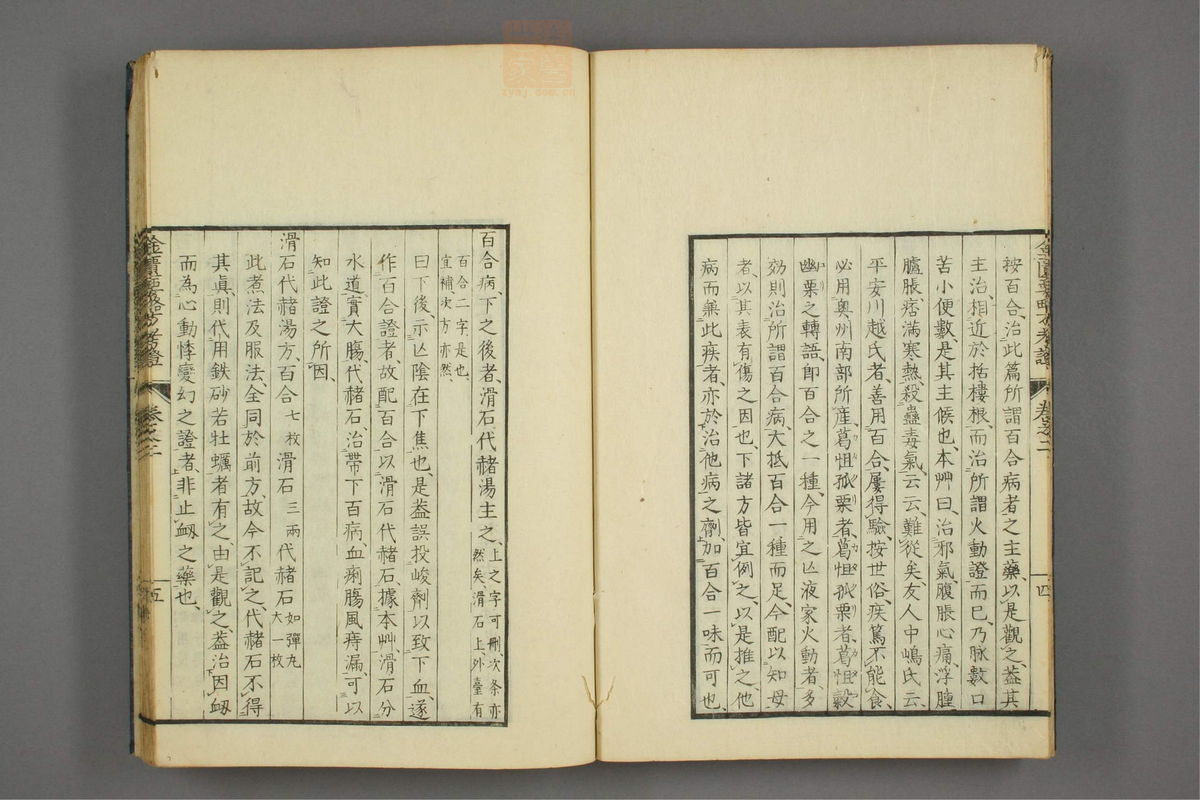 按百合、治此篇所謂百合病者之主藥、以是觀之、蓋其
主治、相近於括樓根、而治所謂火動證而已、乃脉數口
苦小便數、是其主候也、本艸曰、治邪氣腹脹心痛、浮腫
臚脹、痞満寒熱、殺蟲毒氣、云云、難從矣、友人中嶋氏云、
平安川越氏者、善用百合、屢得驗、按世俗、疾篤不能食、
必用奥州南部所產葛怚孤粟者、葛怚孤粟者、葛怚穀
幽粟之轉語、即百合之一種、今用之亾液家火動者、多
効、則治所謂百合病、大抵百合一種而足、今配以知母
者、以其表有傷之因也、下諸方皆宜例之、以是推之、他
病而兼此疾者、亦於治他病之劑、加百合一味而可也、
四
百合病、下之後者、滑石代赭湯主之、上之字可刪、次条亦
然矣、滑石上、外臺有
百合二字是也、
宜補、次方亦然、
曰下後、示亾陰在下焦也、是蓋誤投峻劑、以致下血、遂
作百合證者、故配百合以滑石代赭石、據本艸、滑石分
水道、實大腸、代赭石、治帶下百病、血痢腸風痔漏、可以
知此證之所因、
滑石代赭湯方、百合七枚滑石三兩代赭石如彈丸
大一枚
此煮法及服法、全同於前方、故今不記之、代赭石不得
其眞、則代用鉄砂若牡蠣者有之、由是觀之、蓋治因衂
而為心動悸變幻之證者、非止衂之藥也、
卷之二
五